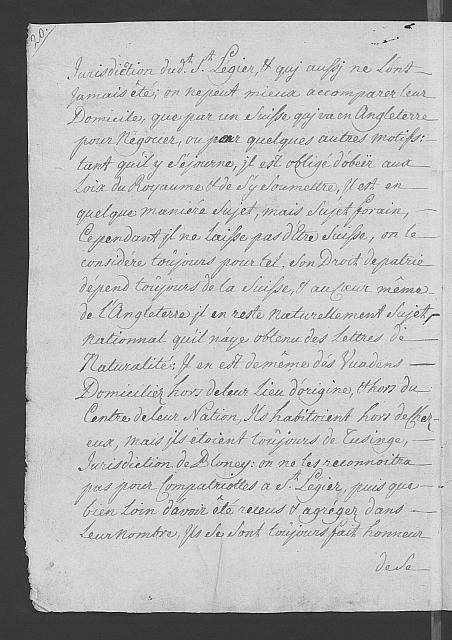 20.
Jurisdiction dud.t S.t Légier, & quj aussj ne l'ônt
Jamais êté; on ne peut mieux accomparer leur
Domicile, que par un Suisse quj va en Angleterre
pour Négocier, ou par quelques autres motifs:
tant qu'il y Séjourne, jl est obligé d'obéïr aux
Loix du Royaume & de S'y Soumettre, Jl est en
quelque maniére Sujet, mais Sujet forain,
Cependant jl ne laisse pas d'être Suisse, on le
considere toûjours pour tel, Son Droit de patrie
dépend toûjours de la Suisse, & au Cœur même
de l'Angleterre jl en reste Naturellement Sujet,
Nationnal qu'il n'aye obtenu des Lettres de
Naturalité: Jl en est de même dés Vuadens
Domiciliez hors de leur Lieu d'origine, & hors du
Centre de leur Nation, Jls habitoient hors de Cher-
eux, mais jls étoient toûjours de Tusinge,
Jurisdiction de Bloney: on ne les reconnoitra
pas pour Compatriottes a S.t Légier, puis que
bien Loin d'avoir êté recеus & agrégez dans
Leur Nombre, Jls Se Sont toûjours fait honneur
de Se